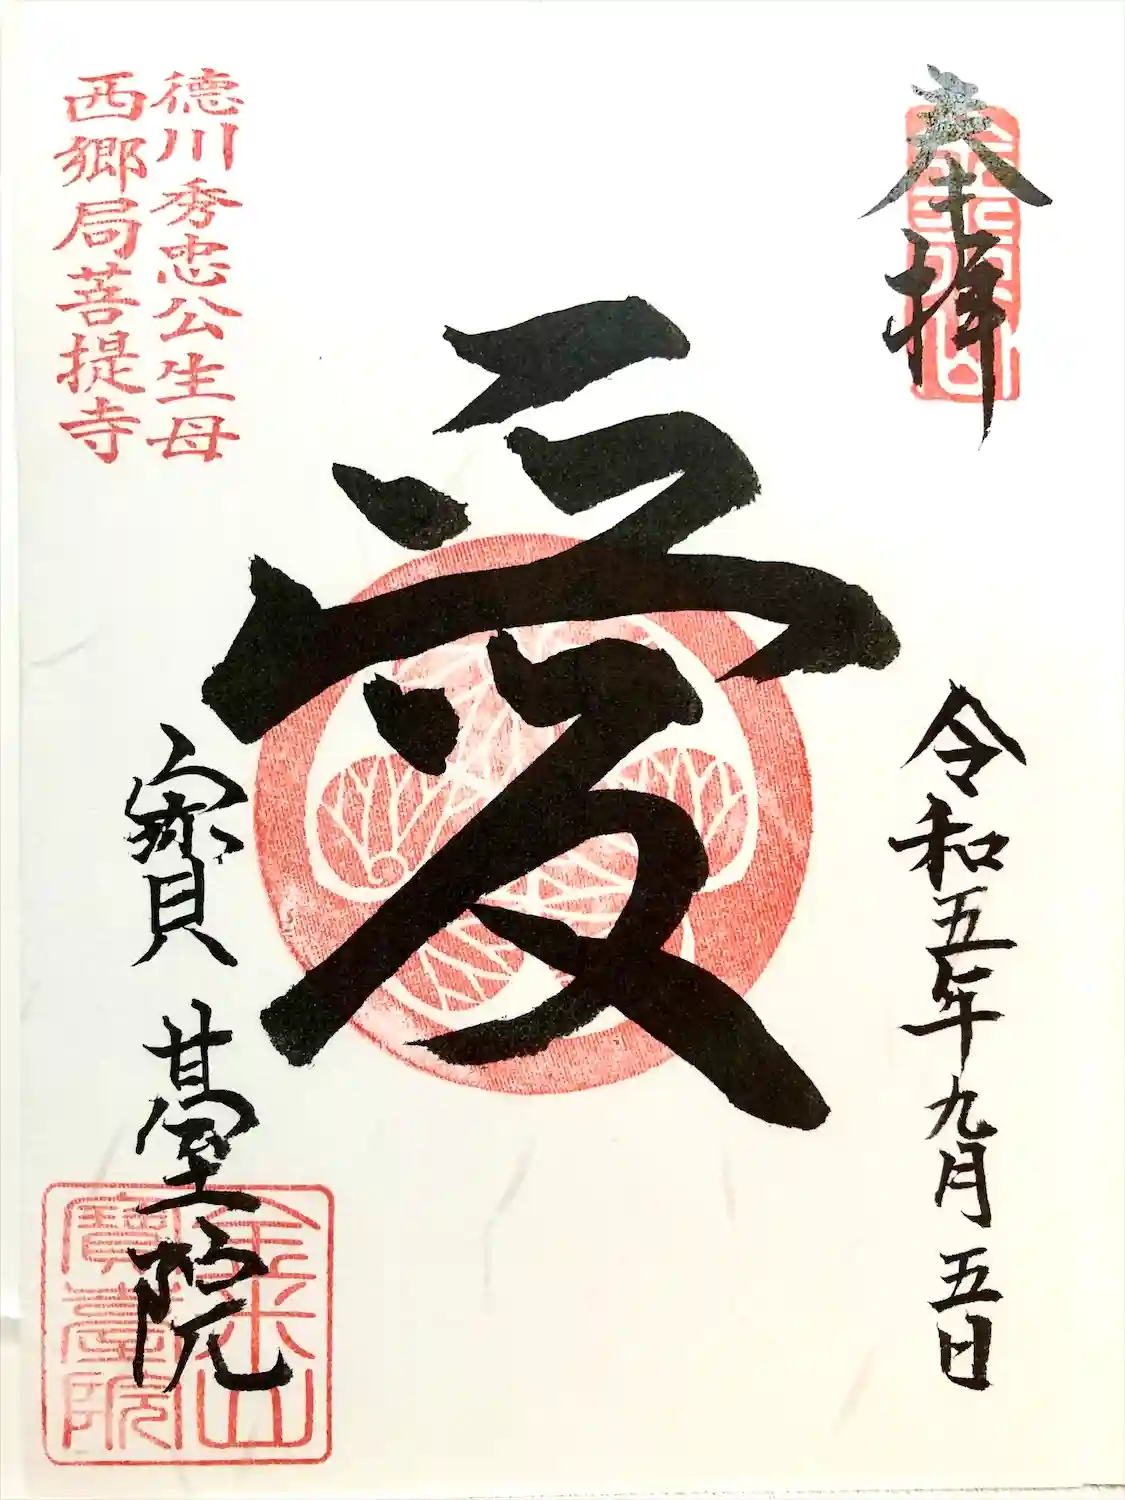 奉拝
令和五年九月五日
愛
寶臺院
徳川秀忠公生母
西郷局菩提寺
金米山
寶臺院